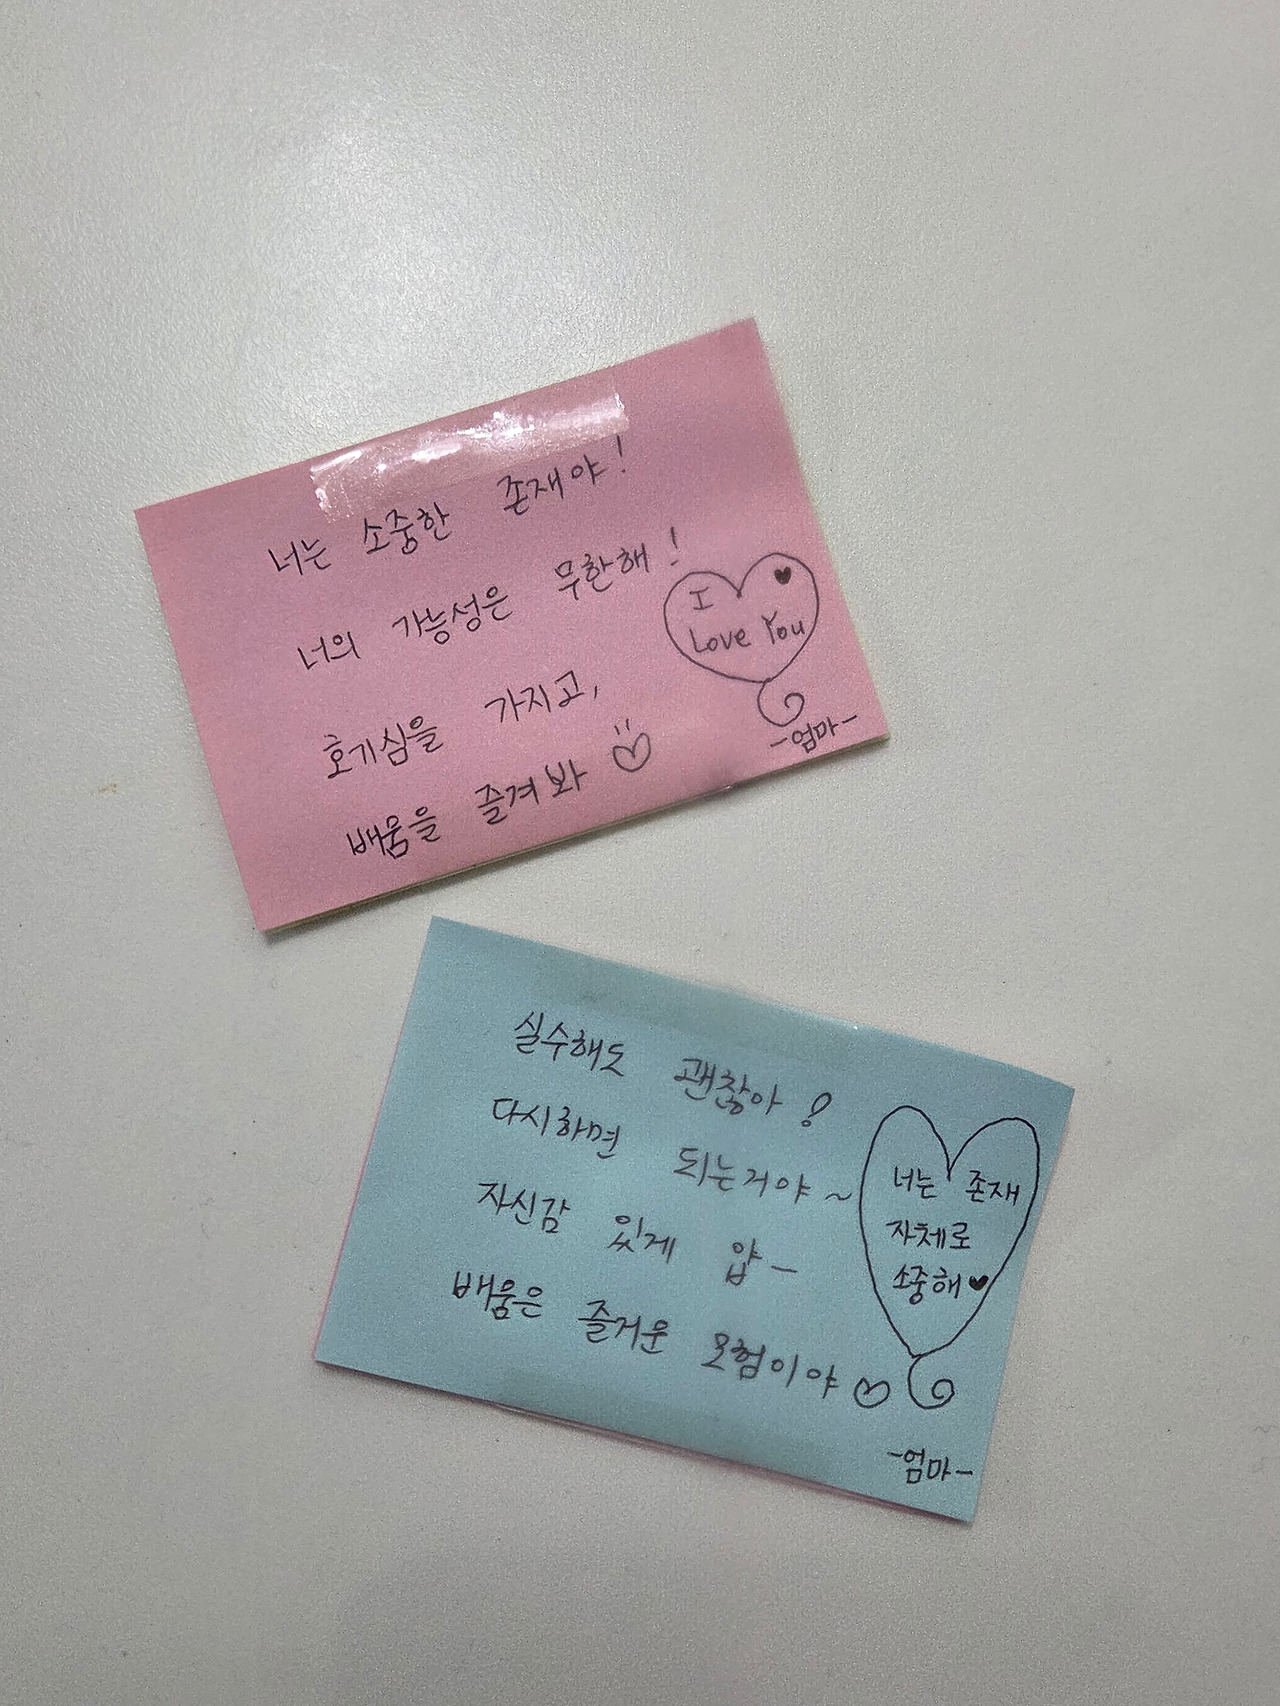 너는 소중한 존재야!
너의 가능성은 무한해!
호기심을 가지고,
배움을 즐겨봐
I
Love You
-엄마-
실수해도 괜찮아!
다시하면 되는거야~
자신감 있게 얍-
배움은 즐거운 모험이야
너는 존재
자체로
소중해
-엄마-